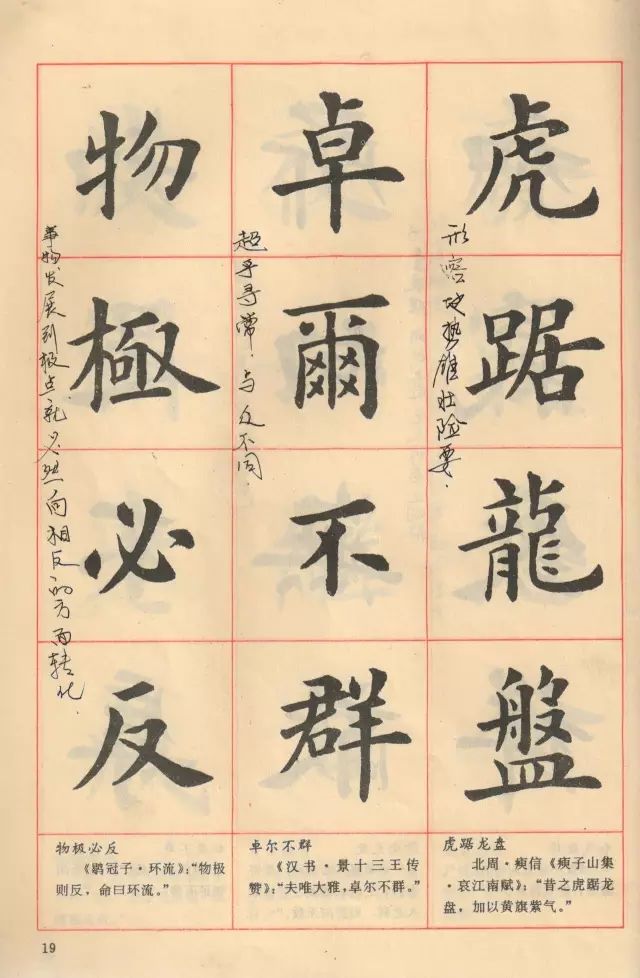 虎踞龍盤
形容地势雄壮险要.
卓爾不群
超乎寻常.与众不同.
物極必反
事物发展到极点,就必然向相反的方面转化.
虎踞龙盘
北周·瘐信《瘐子山集
·哀江南赋》:“昔之虎踞龙
盘,加以黄旗紫气。”
卓尔不群
《汉书·景十三王传
赞》:“夫唯大雅,卓尔不群。”
物极必反
《鹖冠子·环流》:“物极
则反,命曰环流。”
19